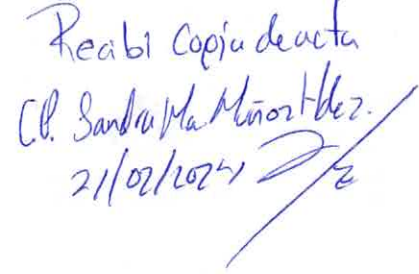 Recibi Copia de acta
C.P. Sandra Ma. Muñoz Hdez.
21/02/2024